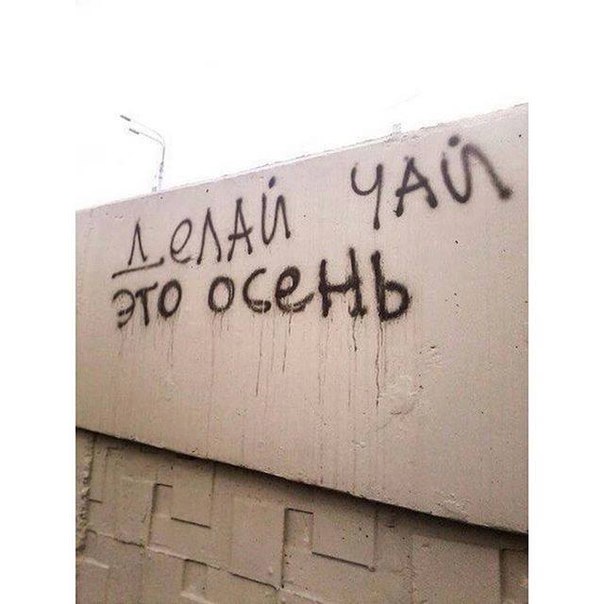 ДЕЛАЙ ЧАЙ
ЭТО ОСЕНЬ